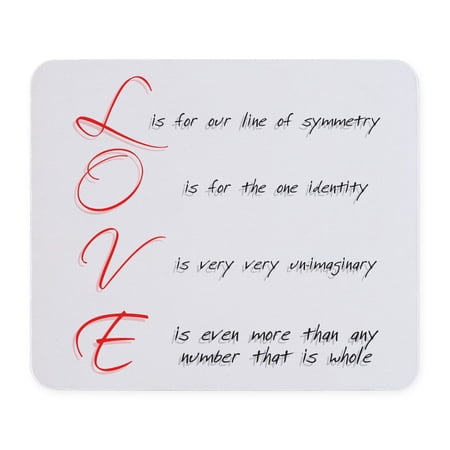 L is for our line of symmetry
O is for the one identity
V is very very un-imaginary
E is even more than any
number that is whole